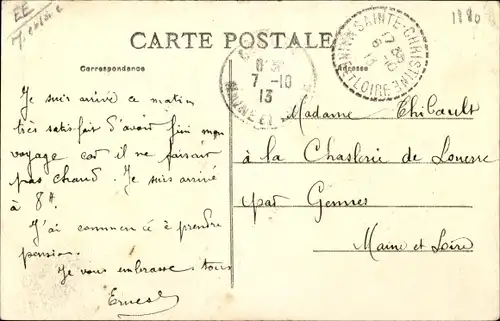 EE
1880
CARTE POSTALE
Correspondance
Adresse
SAINTE-CHRISTINE
MAINE ET LOIRE
17 35
6 -10
13
7 -10
13
MAINE ET
Je suis arrivé ce matin
très satisfait d'avoir fini mon
voyage car il ne faisait
pas chaud. Je suis arrivé
à 8h.
J'ai commencé à prendre
pension.
Je vous embrasse tous
Ernest
Madame Thibault
à la Chaslerie de Louerre
par Gennes
Maine et Loire